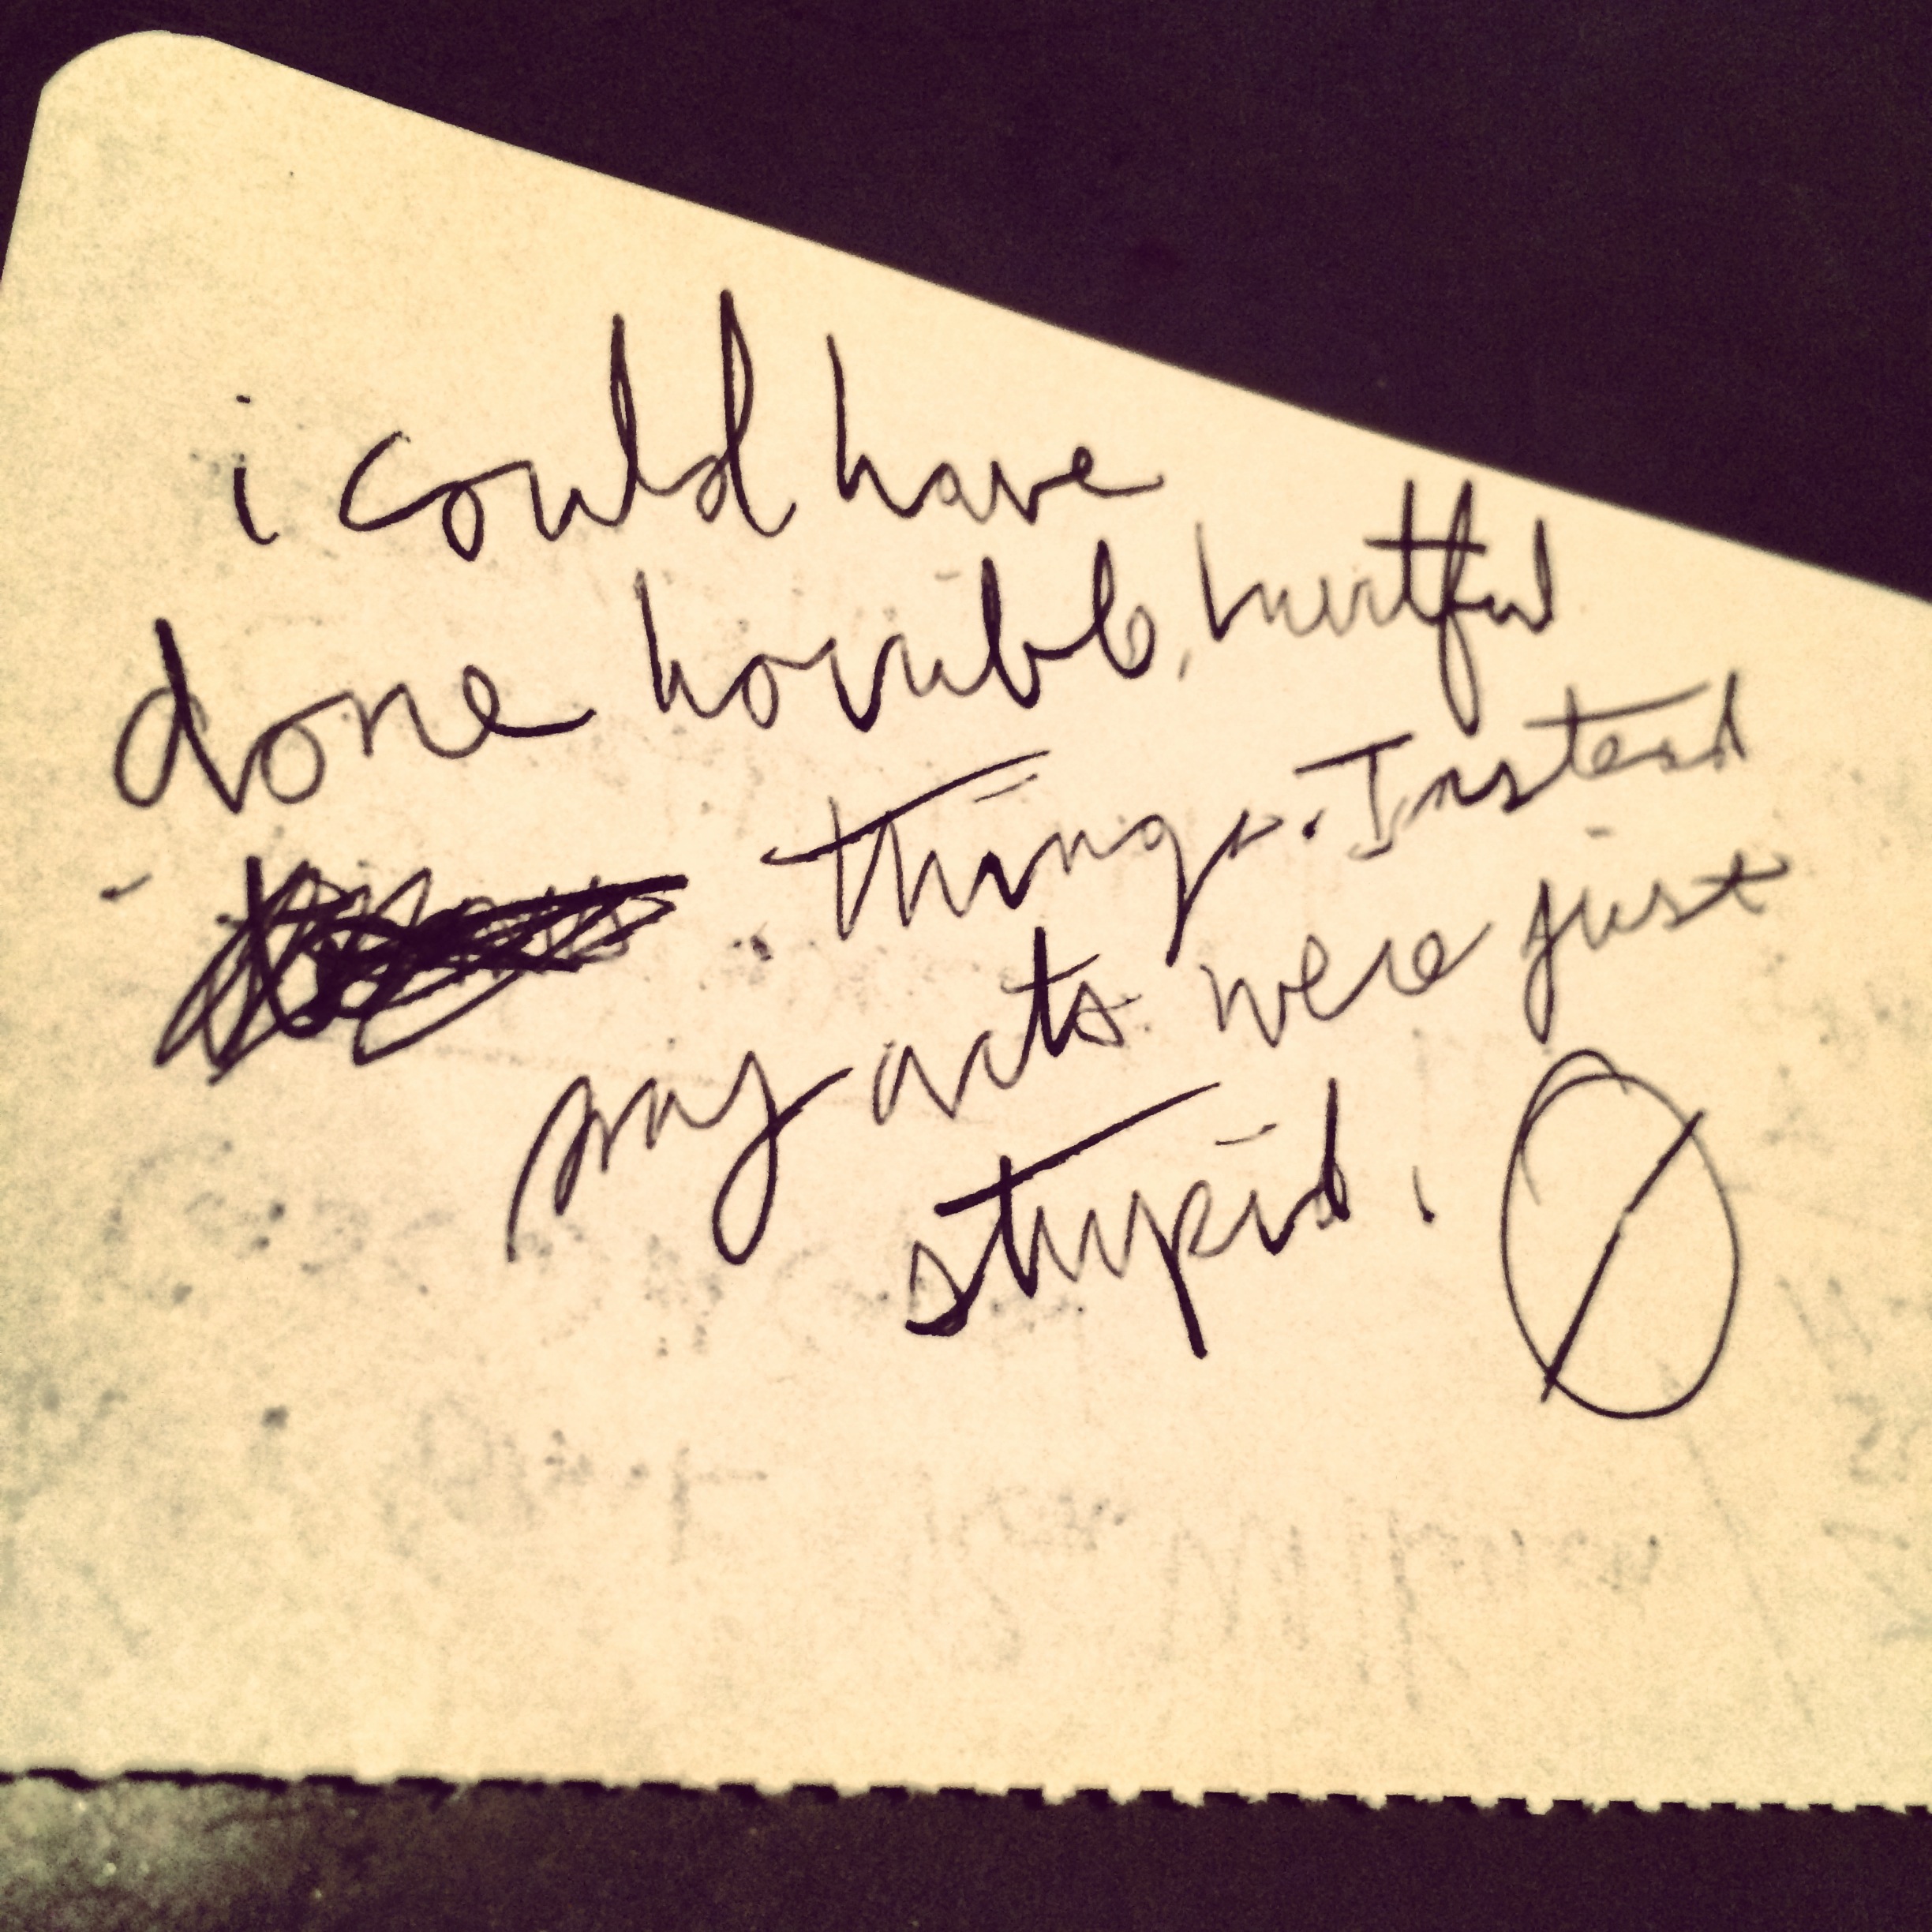 i could have
done horrible, hurtful
things. Instead
my acts were just
stupid.